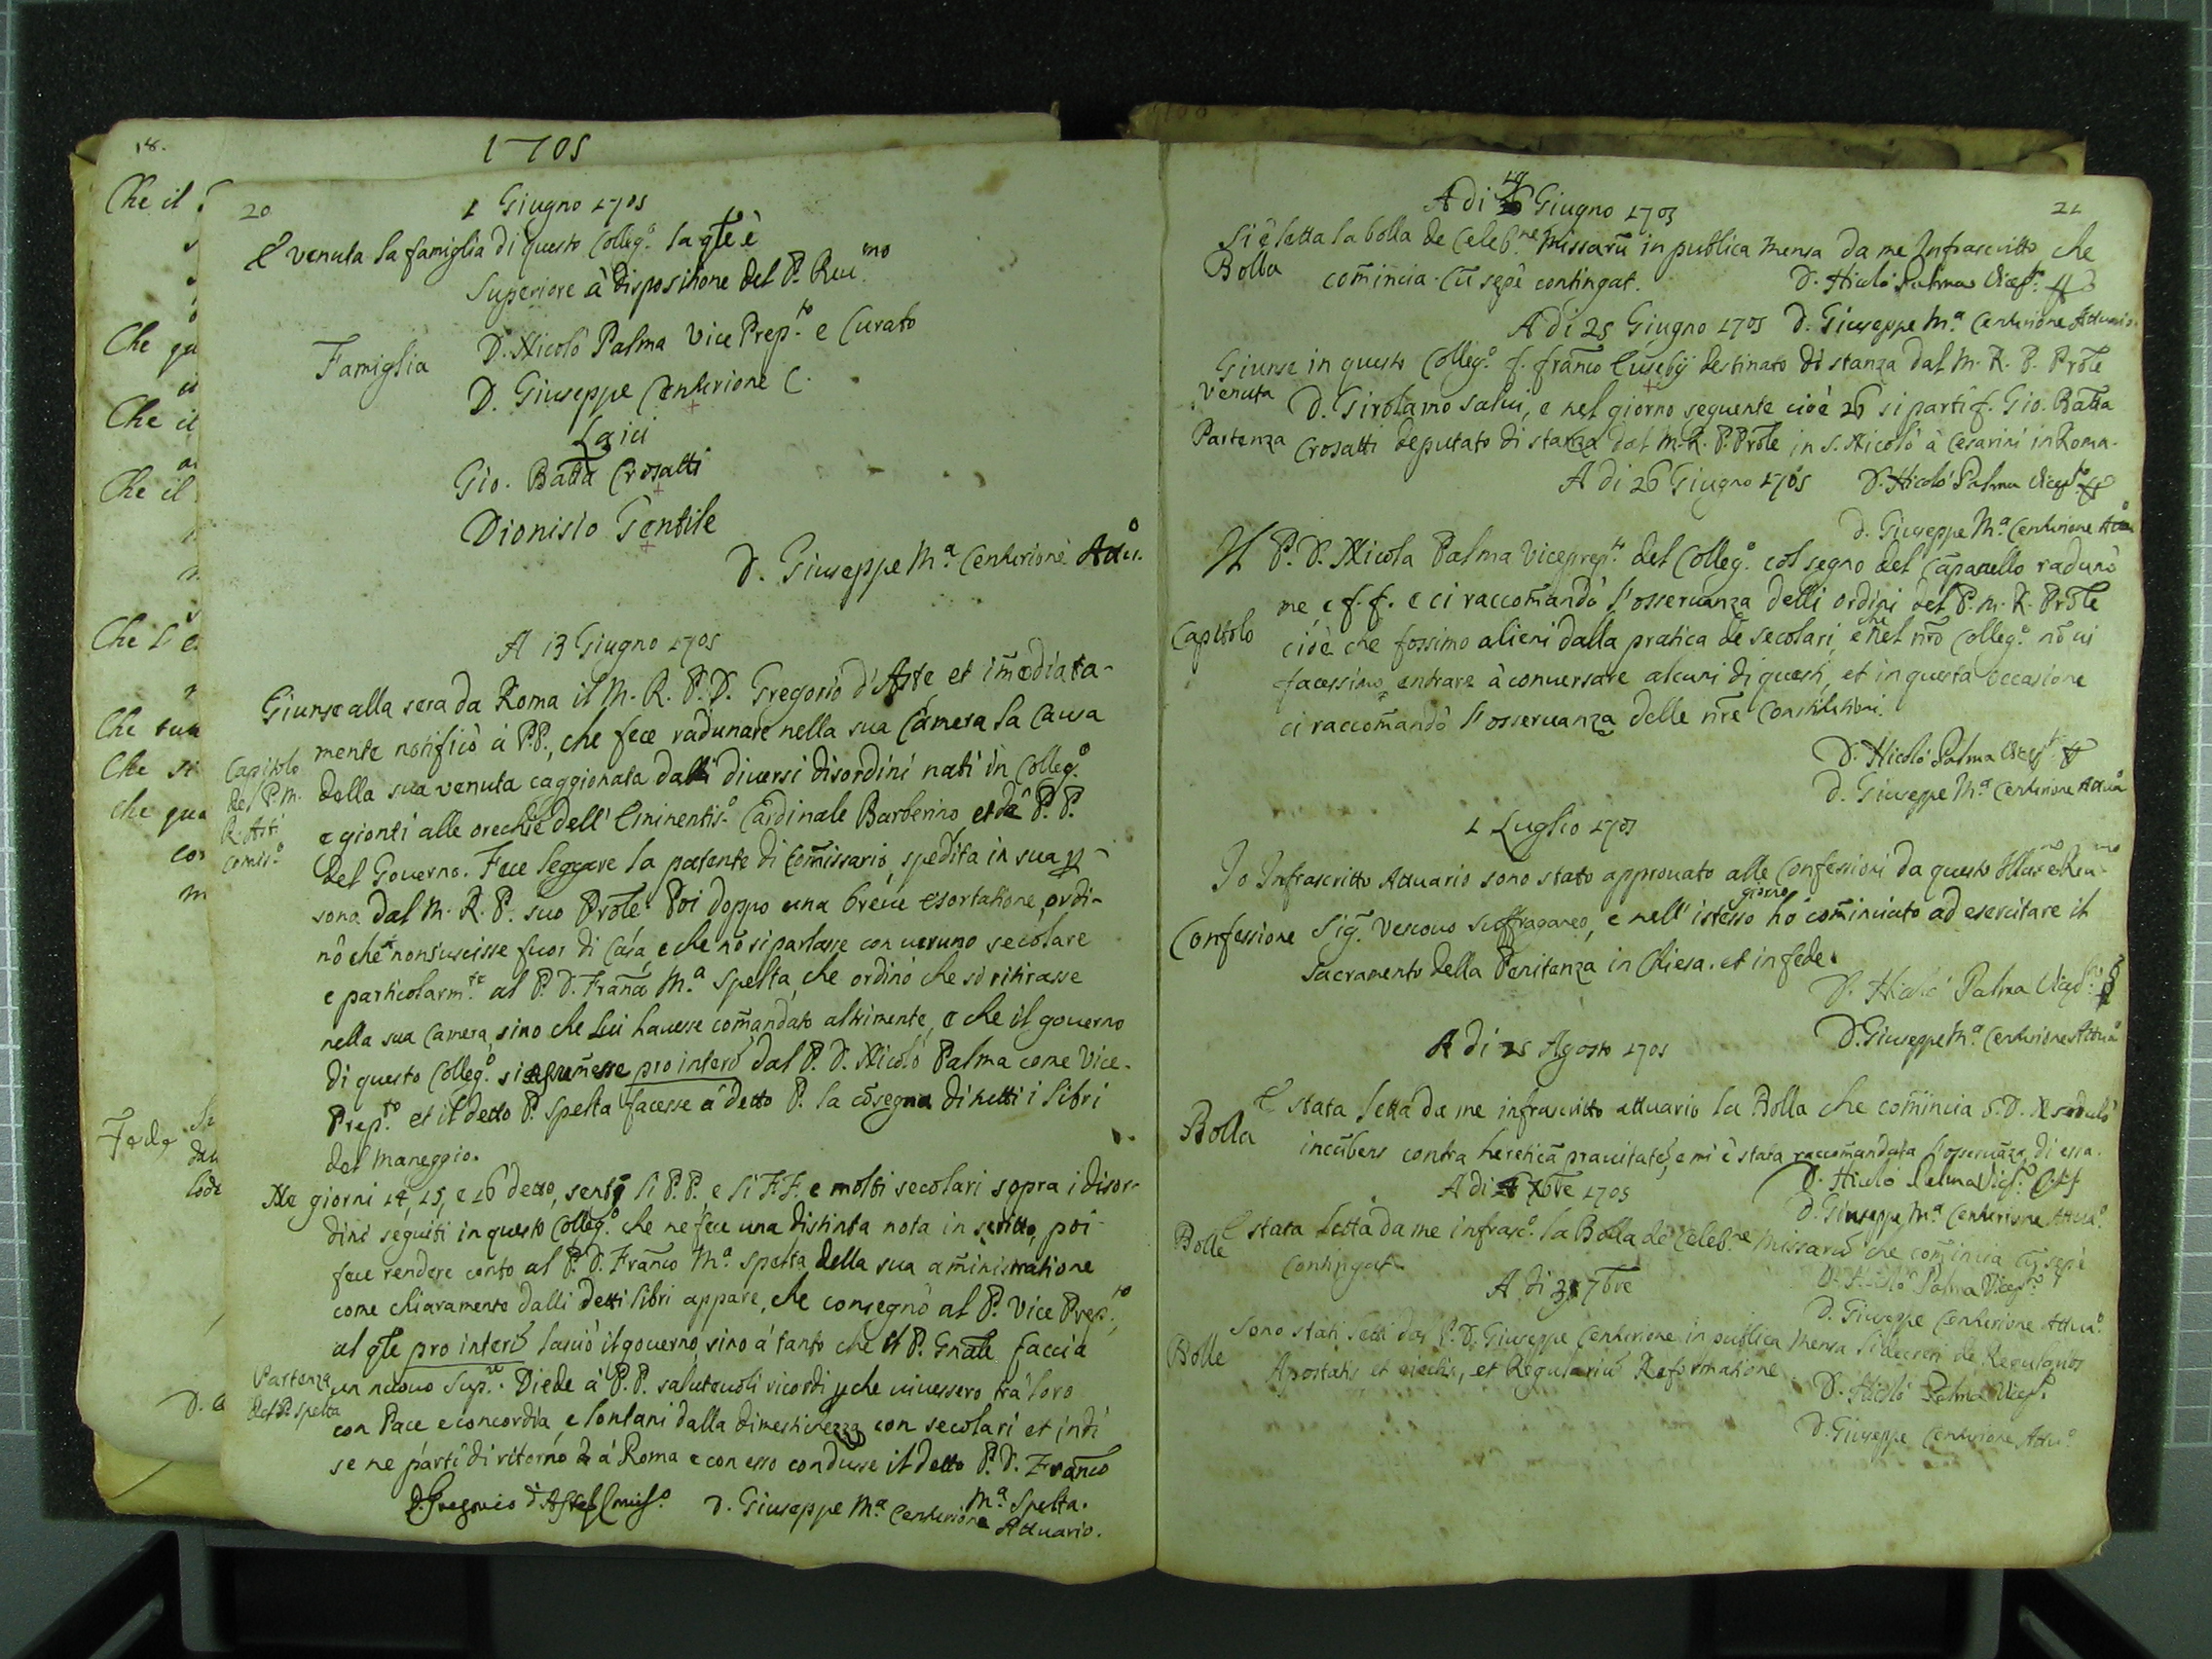 18.
Che il
Che qu
Che il
Che il
Che l'e
Che tua
Che si
Che qua
con
m
Fede
1705
20
1 Giugno 1705
È venuta la famiglia di questo Colleg.o la qle è
Superiore à dispositione del P. Reu.mo
Famiglia
D. Nicolò Palma Vice Prep.to e Curato
D. Giuseppe Centurione C.
Laici
Gio. Batta Crosatti
Dionisio Gentile
D. Giuseppe M.a Centurione Attu.o
A 13 Giugno 1705
Giunse alla sera da Roma il M. R. P. D. Gregorio d'Aste et imediata-
Capitolo
del P. M.
R. Asti
Comis.o
mente notificò à P.P., che fece radunare nella sua Camera la causa
della sua venuta caggionata dalli diuersi disordini nati in Colleg.o
e gionti alle orechie dell' Eminentis.o Cardinale Barberino et da P. P.
del Gouerno. Fece leggere la patente di Comissario, spedita in sua p-
sona dal M. R. P. suo Prole. Poi doppo una breue esortatione, ordi-
nò che non s'uscisse fuor di Casa, e che nō si parlasse con ueruno secolare
e particolarm.te al P. D. Franco M.a Spelta, che ordinò che si ritirasse
nella sua Camera, sino che Lui hauesse comandato altrimente, e che il gouerno
di questo Colleg.o si pro interi dal P. D. Nicolò Palma come Vice-
Prep.to et il detto P. Spelta facesse à detto P. la cōsegna di tutti i libri
del maneggio.
Ne giorni 14, 15, e 16 detto, sentì li P.P. e li F.F. e molti secolari sopra i disor-
dini seguiti in questo Colleg.o che ne fece una distinta nota in scritto, poi
fece rendere conto al P. D. Franco M.a Spelta della sua aministratione
come chiaramente dalli detti libri appare, che consegnò al P. Vice Prep.to,
al qle pro interi lasciò il gouerno, sino à tanto che il P. Gnale faccia
Partenza
del P. Spelta
un nuouo Sup.re. Diede à P.P. salutevoli ricordi p che uiuessero trà loro
con Pace e concordia, e lontani dalla dimestichezza con secolari et indi
se ne partì di ritorno à Roma e con esso condusse il detto P. D. Franco
M.a Spelta.
D. Gregorio d'Aste Comis.o D. Giuseppe M.a Centurione Attuario.
21
A di 19 Giugno 1705
Si è letta la bolla de Celeb.ne Missarū in publica Mensa da me Infrascritto, che
Bolla
comincia. Cū sepè contingat. D. Nicolò Palma Vicep.to
A di 25 Giugno 1705 D. Giuseppe M.a Centurione Attuario.
Giunse in questo Colleg.o f. franco Eusebij destinato di stanza dal M. R. P. Prole
Venuta
D. Girolamo Salui, e nel giorno seguente cioè 26 si partì f. Gio. Batta
Partenza
Crosatti deputato di stanza dal M. R. P. Prole in S. Nicolò à Cesarini in Roma.
A di 26 Giugno 1705 D. Nicolò Palma Vicep.to
D. Giuseppe M.a Centurione Attu.o
Il P. D. Nicola Palma Viceprep.to del Colleg.o col segno del Cāpanello radunò
me, e f.f. e ci raccomandò l'osseruanza delli ordini del P. M. R. Prole
Capitolo
cioè che fossimo alieni dalla pratica de secolari, e che nel nro Colleg.o nō ui
facessimo entrare à conuersare alcuni di questi, et in questa occasione
ci raccomandò l'osseruanza delle nre Constitutioni.
D. Nicolò Palma Vicep.to
D. Giuseppe M.a Centurione Attua.o
1 Luglio 1705
Io Infrascritto Attuario sono stato approuato alle Confessioni da questo Illus.mo e Reu.mo
Confessione
Sig. Vescouo Suffraganeo, e nell' istesso giorno hò cominciato ad esercitare il
Sacramento della Penitenza in Chiesa. et in fede.
D. Nicolò Palma Vicep.to
D. Giuseppe M.a Centurione Attua.o
A di 25 Agosto 1705
È stata letta da me infrascritto attuario la Bolla che comincia S. D. N. sedulò
Bolla
incūbens contra hereticā prauitatē, e mi è stata raccomandata l'osseruāza di essa.
D. Nicolò Palma Vicep.to
A di 7bre 1705
D. Giuseppe M.a Centurione Attua.o
Bolle
È stata letta da me infrasc.o la Bolla de Celeb.ne Missarū che comincia Cū sepè
Contingat.
D. Nicolò Palma Vicep.to
A di 7bre
D. Giuseppe Centurione Attua.o
Sono stati letti dal P. D. Giuseppe Centurione in publica Mensa li decreti de Regularibus
Bolle
Apostatis et eiectis, et Regulariū Reformatione.
D. Nicolò Palma Vicep.to
D. Giuseppe Centurione Attu.o